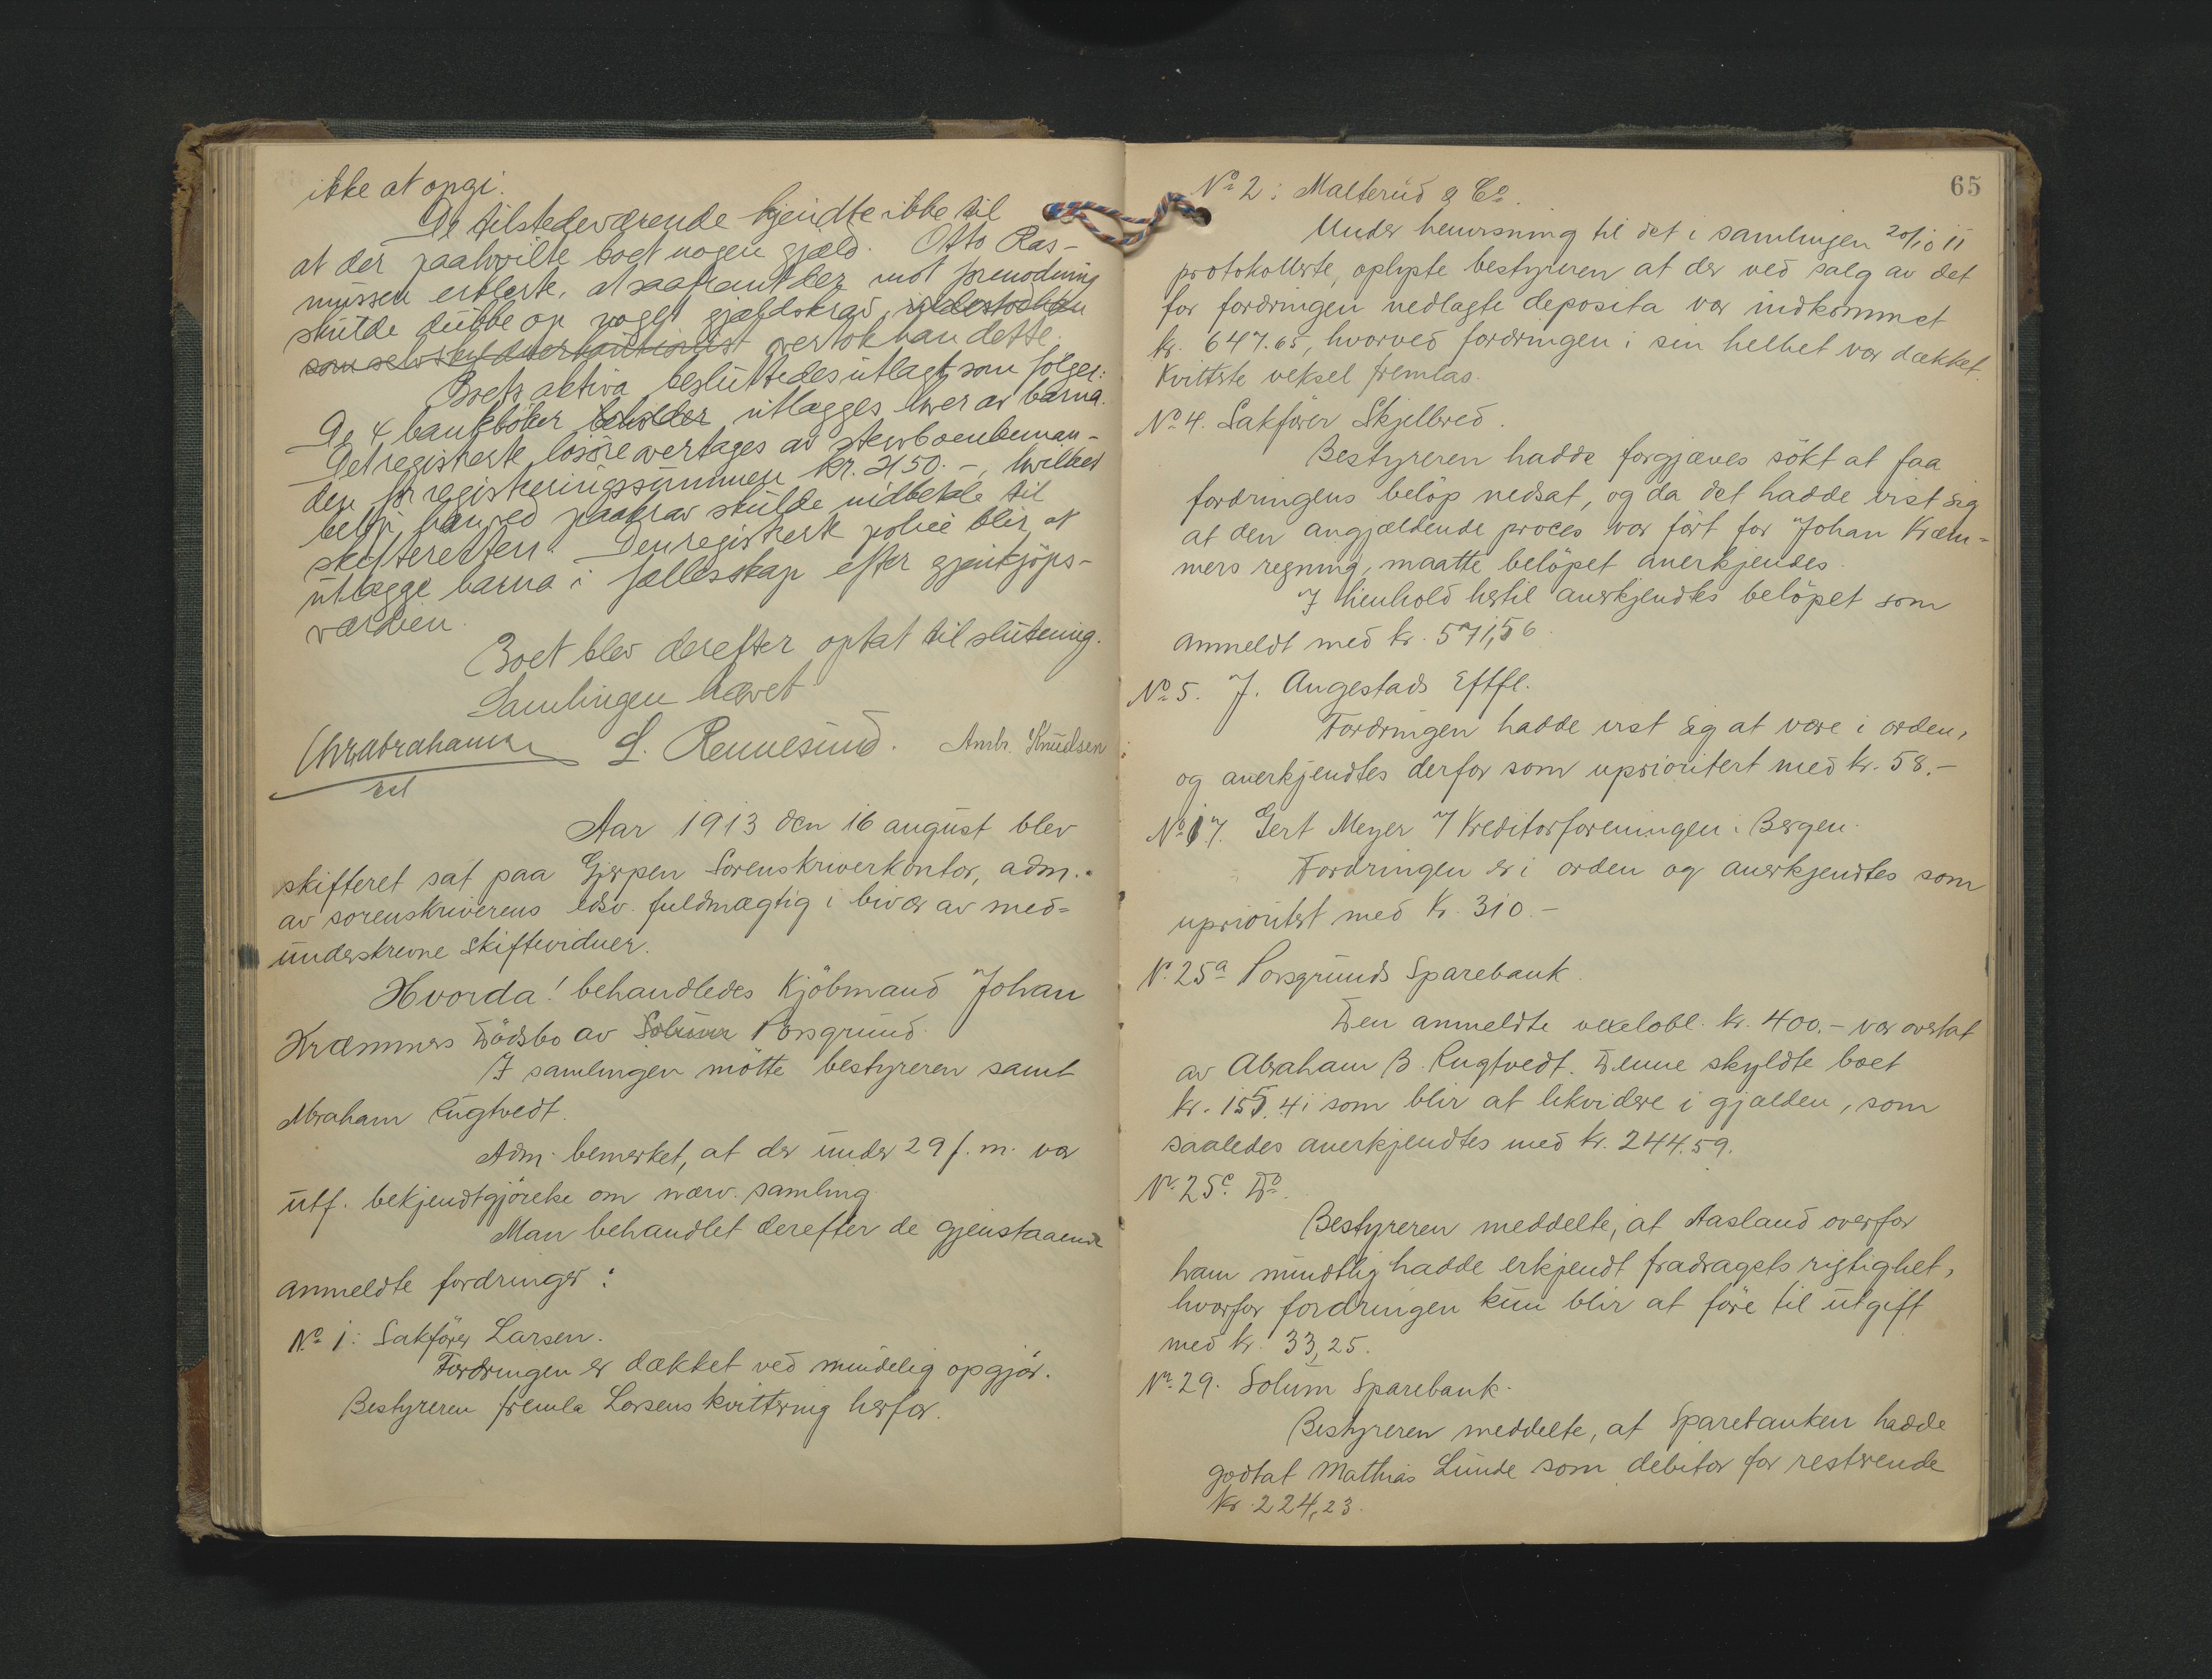 ikke at opgi.
De tilstedeværende kjendte ikke til
at der paahvilte boet nogen gjæld. Otto Ras-
mussen erklærte, at saafremt der mot formodning
skulde dukke op noget gjældskrav,
som selvskyldnerkautionist overtok han dette.
Boets aktiva besluttedes utlagt som følger:
De 4 bankbøker beholder utlægges hver av barna.
Det registrerte løsøre overtages av sterboenkeman-
den for registreringssummen kr. 2150.-, hvilket
beløp han ved paakrav skulde indbetale til
skifteretten. Den registrerte police blir at
utlægge barna i fællesskap efter gjenkjøps-
værdien.
Boet blev derefter optat til slutning.
Samlingen hævet
Chr Abrahamsen L. Rennesund. Ambr. Knudsen
cst
Aar 1913 den 16 august blev
skifteret sat paa Gjerpen Sorenskriverkontor, adm.
av sorenskriverens edsv. fuldmægtig i bivær av med-
underskrevne skiftevidner.
Hvorda! behandledes Kjöbmand Johan
Kræmmers Dödsbo av Solum Porsgrund.
I samlingen mötte bestyreren samt
Abraham Rugtvedt.
Adm. bemerket, at der under 29 f. m. var
utf. bekjendtgjörelse om nærv. samling.
Man behandlet derefter de gjenstaaende
anmeldte fordringer:
No 1: Sakförer Larsen.
Fordringen er dækket ved mindelig opgjör.
Bestyreren fremla Larsens kvittering herfor.
65
No 2: Malterud & Co.
Under henvisning til det i samlingen 20/10 11
protokollerte, oplyste bestyreren at der ved salg av det
for fordringen nedlagte deposita var indkommet
kr. 647.65, hvorved fordringen i sin helhet var dækket.
Kvitterte veksel fremlas.
No 4. Sakförer Skjelbred.
Bestyreren hadde forgjæves sökt at faa
fordringens belöp nedsat, og da det hadde vist sig
at den angjældende proces var fört for Johan Kræm-
mers regning, maatte belöpet anerkjendes.
I henhold hertil anerkjendtes belöpet som
anmeldt med kr. 571,56.
No 5. J. Angestads Eftfl.
Fordringen hadde vist sig at være i orden,
og anerkjendtes derfor som uprioritert med kr. 58.-
No 17. Gert Meyer / Kreditorforeningen i Bergen.
Fordringen er i orden og anerkjendtes som
uprioritert med kr. 310.-
No. 25a Porsgrunds Sparebank.
Den anmeldte vexelobl. kr. 400.- var overtat
av Abraham B. Rugtvedt. Denne skyldte boet
kr. 155.41 som blir at likvidere i gjælden, som
saaledes anerkjendtes med kr. 244.59.
No. 25c Do.
Bestyreren meddelte, at Aasland overfor
ham mundtlig hadde erkjendt fradragets rigtighet,
hvorfor fordringen kun blir at före til utgift
med kr. 33,25.
No. 29. Solum Sparebank.
Bestyreren meddelte, at Sparebanken hadde
godtat Mathias Lunde som debitor for resterende
kr. 224,23.